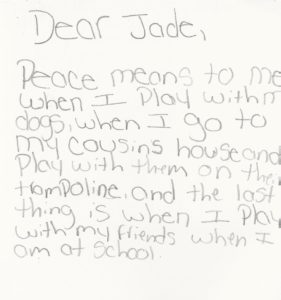 Dear Jade,
Peace means to me
when I Play with m
dogs, when I go to
my cousins house and
Play with them on thei
trampoline. and the last
thing is when I Play
with my friends when I
am at school.